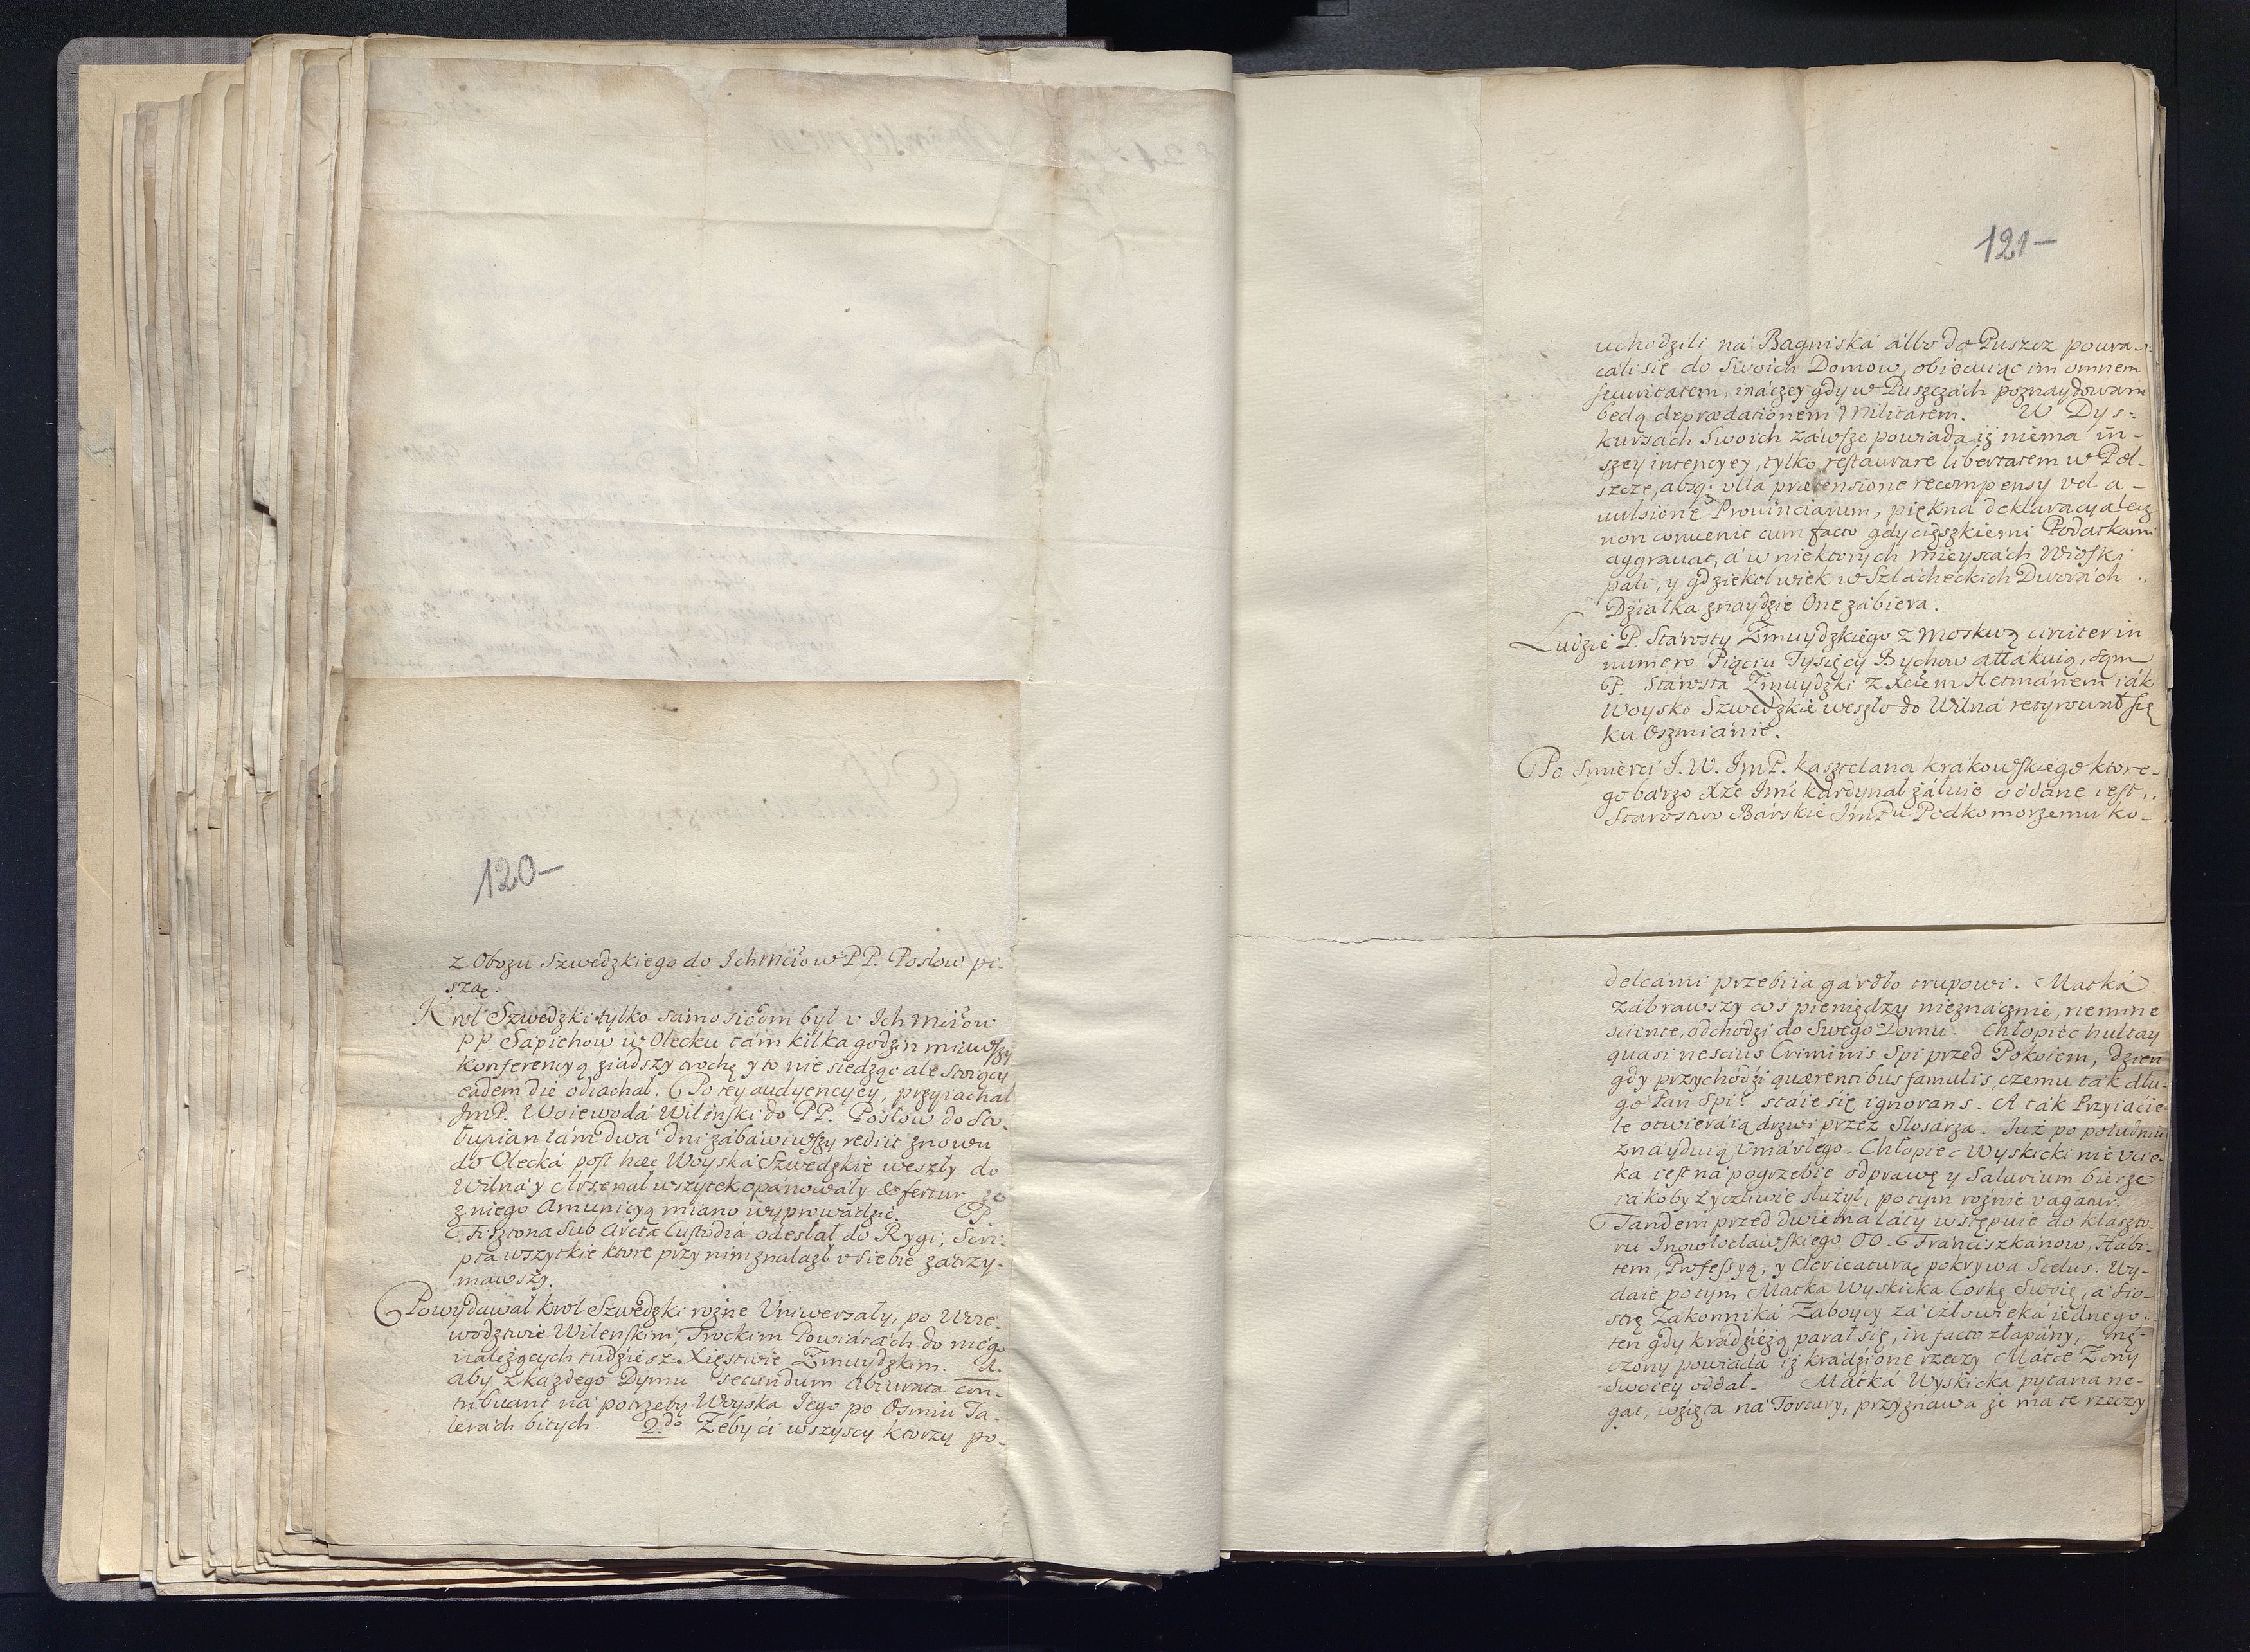 120-
z Obozu Szwedzkiego do Ichmciow PP. Posłow pi-
szą.
Krol Szwedzki tylko samosiodm był v Ichmciow
PP. Sapiehow w Olecku tám kilka godzin miawszy
konferencyą ziadszy trochę y to nie siedząc ale stoiący
eadem die odiachał. Po tey audyencyey, przyiachał
JmP. Woiewoda Wilenski do PP. Posłow do Sto-
łupian tám dwa dni zábáwiwszy rediit znowu
do Olecká post hæc Woyská Szwedzkie weszły do
Wilná y Arsenał wszytek opánowáły & fertur ze
z niego Amunicyą miano wyprowádzić. P.
Fisztona sub arcta Custodia odesłał do Rygi, Scri-
pta wszytkie ktore przy nim znalazł v siebie zátrzy-
mawszy.
Powydawał krol Szwedzki rożne Vniwersały, po Woie-
wodztwie Wilenskim, Trockim Powiátách do niego
należących tudziesz Xięstwie Zmuydzkim. 1.
aby z każdego Dymu secundum Abiurata con-
tribuant ná potrzeby Woyska Jego po Osmiu Ta-
lerách bitych. 2do Zeby ci wszyscy ktorzy po-
121-
uchodzili ná Bagniská álbo do Puszcz powra-
cáli się do swoich Domow, obiecuiąc im omnem
securitatem, ináczey gdy w Puszczách poznaydowáni
będą deprædationem Militarem. W Dys-
kursách swoich záwsze powiáda iż niema in-
szey intencyey, tylko restaurare libertatem w Pol-
szcze, absq; vlla prætensione recompensy vel a-
uulsione Prouinciarum, piękna deklaracya lecz
non conuenit cum facto gdy cięszkiemi Podatkami
aggrauat, á w niektorych mieyscách Wioski
pali, y gdziekolwiek w Szlácheckich Dworách
Dziáłka znaydzie One zábiera.
Ludzie P. Stárosty Zmuydzkiego z Moskwą circiter in
numero Pięciu Tysięcy Bychow áttákuią, sąm
P. Stárosta Zmuydzki z Xciem Hetmánem iák
Woysko Szwedzkie weszło do Wilná retyrował się
ku Oszmiánie.
Po śmierci J. W. JmP. kasztelana krákowskiego ktore-
go bárzo Xże Jmć kárdynał záłuie oddane iest
Starostwo Bárskie JmPu Podkomorzemu ko-
delcámi przebiia gárdło trupowi. Matká
zábrawszy coś pieniędzy nieznácznie, nemine
sciente, odchodzi do swego Domu. Chłopiec hultay
quasi nescius Criminis spi przed Pokoiem, dzien
gdy przychodzi quærentibus famulis, czemu ták dłu-
go Pan spi? stáie się ignorans. A ták Przyiácie-
le otwieráią drzwi przez slosarza. Już po południu
znáyduią Vmárłego. Chłopiec Wyskicki nie vcie-
ka iest ná pogrzebie odprawę y Salarium bierze
iákoby życzliwie służył, potym rożnie vagatur.
Tandem przed dwiema láty wstępuie do klaszto-
ru Inowłocłáwskiego OO. Fránciszkánow, Habi-
tem, Professyą, y Clericaturaę pokrywa Scelus. Wy-
dáie potym Matka Wyskicka Corkę swoię, á sio-
strę Zakonniká Zaboycy zá człowieká iednego
ten gdy krádzieżą parał się, in facto złapány, mę-
czony powiáda iż krádzione rzeczy Mátce Zony
swoiey oddał. Matká Wyskicka pytana ne-
gat, wzięta ná Tortury, przyznawa że ma te rzeczy